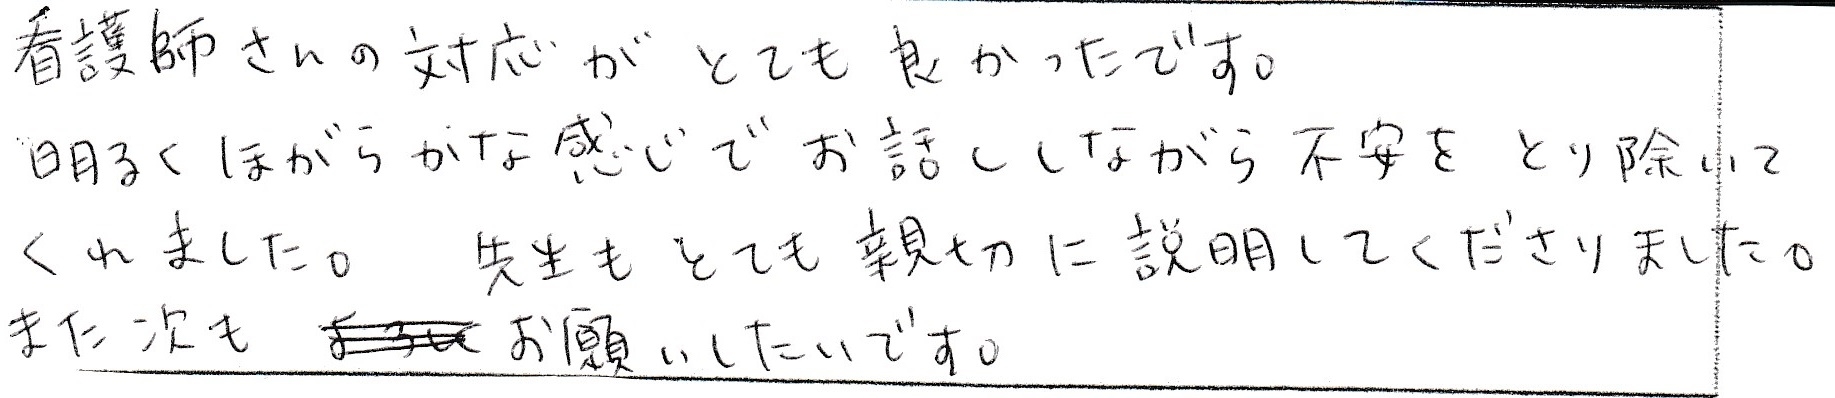 看護師さんの対応がとても良かったです。
明るくほがらかな感じでお話ししながら不安をとり除いて
くれました。 先生もとても親切に説明してくださりました。
また次も お願いしたいです。